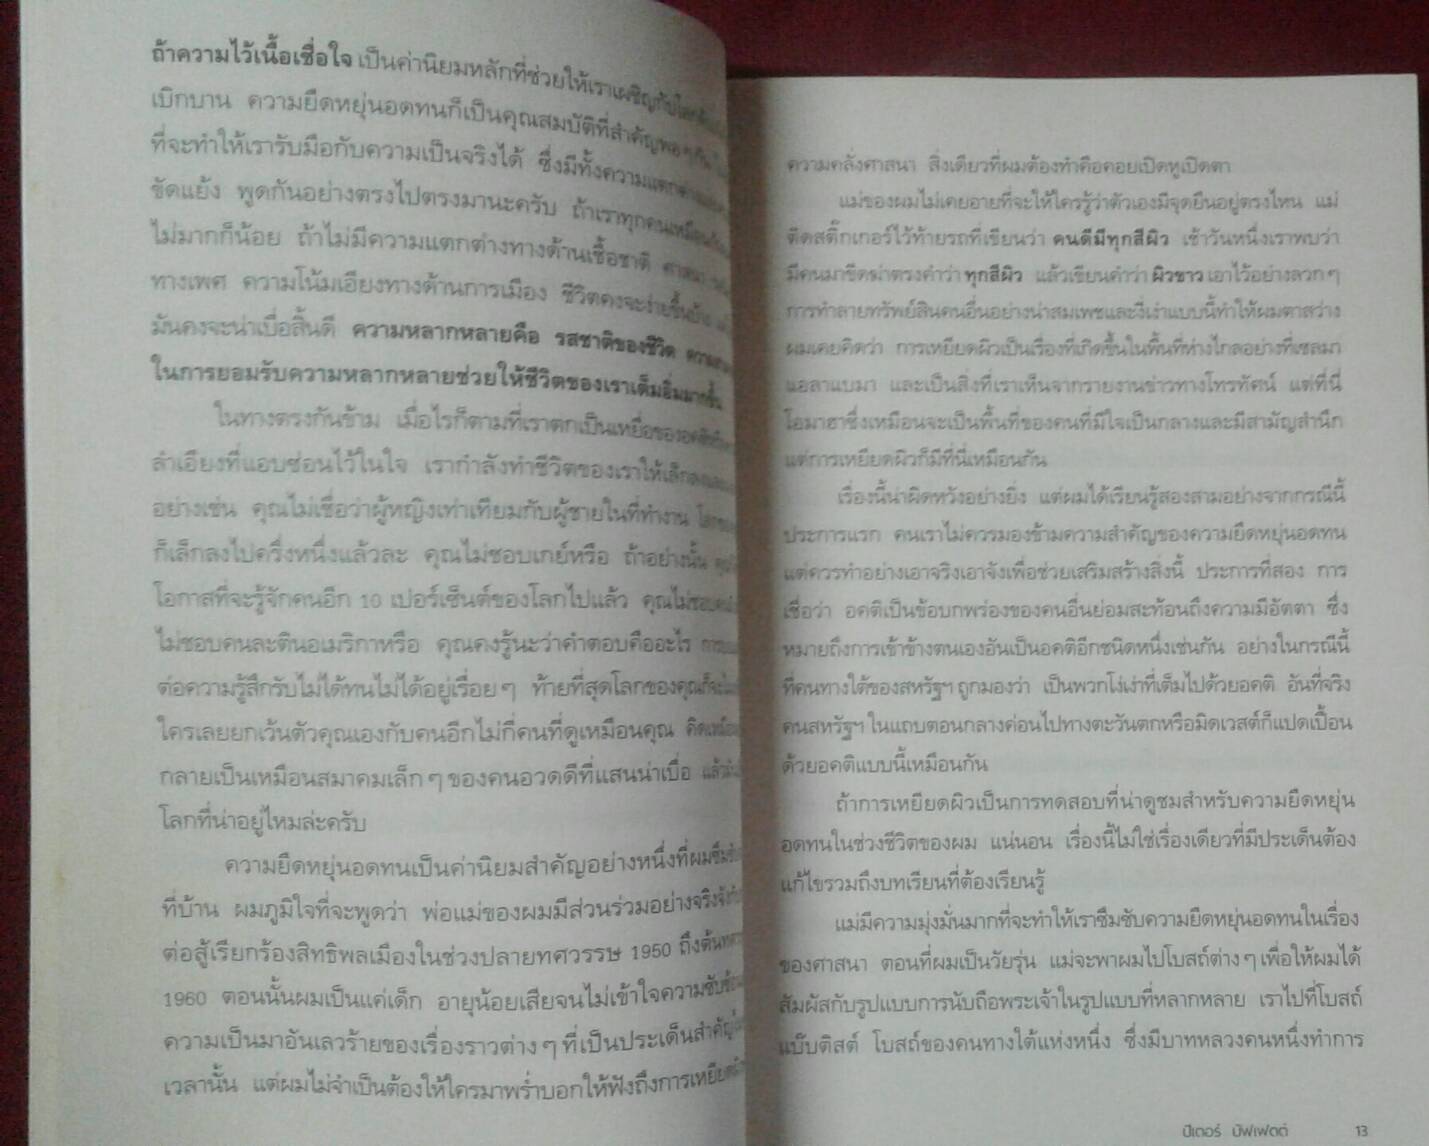 ถ้าความไว้เนื้อเชื่อใจ เป็นค่านิยมหลักที่ช่วยให้เราเผชิญกับโลก
เบิกบาน ความยืดหยุ่นอดทนก็เป็นคุณสมบัติที่สำคัญพอๆ กัน
ที่จะทำให้เรารับมือกับความเป็นจริงได้ ซึ่งมีทั้งความแตกต่าง
ขัดแย้ง พูดกันอย่างตรงไปตรงมานะครับ ถ้าเราทุกคนเหมือน
ไม่มากก็น้อย ถ้าไม่มีความแตกต่างทางด้านเชื้อชาติ ศาสนา
ทางเพศ ความโน้มเอียงทางด้านการเมือง ชีวิตคงจะง่ายขึ้นบ้าง
มันคงจะน่าเบื่อสิ้นดี ความหลากหลายคือ รสชาติของชีวิต
ในการยอมรับความหลากหลายช่วยให้ชีวิตของเราเต็มอิ่มมากขึ้น
ในทางตรงกันข้าม เมื่อไรก็ตามที่เราตกเป็นเหยื่อของ
ลำเอียงที่แอบซ่อนไว้ในใจ เรากำลังทำชีวิตของเราให้เล็กลง
อย่างเช่น คุณไม่เชื่อว่าผู้หญิงเท่าเทียมกับผู้ชายในที่ทำงาน
ก็เล็กลงไปครึ่งหนึ่งแล้วละ คุณไม่ชอบเกย์หรือ ถ้าอย่างนั้น
โอกาสที่จะรู้จักคนอีก 10 เปอร์เซ็นต์ของโลกไปแล้ว คุณไม่ชอบ
ไม่ชอบคนละตินอเมริกาหรือ คุณคงรู้นะว่าคำตอบคืออะไร
ต่อความรู้สึกรับไม่ได้ทนไม่ได้อยู่เรื่อยๆ ท้ายที่สุดโลกของคุณก็จะ
ใครเลยยกเว้นตัวคุณเองกับคนอีกไม่กี่คนที่ดูเหมือนคุณ
กลายเป็นเหมือนสมาคมเล็กๆ ของคนอวดดีที่แสนน่าเบื่อ
โลกที่น่าอยู่ไหมล่ะครับ
ความยืดหยุ่นอดทนเป็นค่านิยมสำคัญอย่างหนึ่งที่ผมซึมซับ
ที่บ้าน ผมภูมิใจที่จะพูดว่า พ่อแม่ของผมมีส่วนร่วมอย่างจริงจัง
ต่อสู้เรียกร้องสิทธิพลเมืองในช่วงปลายทศวรรษ 1950 ถึงต้น
1960 ตอนนั้นผมเป็นแค่เด็ก อายุน้อยเสียจนไม่เข้าใจความซับซ้อน
ความเป็นมาอันเลวร้ายของเรื่องราวต่างๆ ที่เป็นประเด็นสำคัญ
เวลานั้น แต่ผมไม่จำเป็นต้องให้ใครมาพร่ำบอกให้ฟังถึงการเหยียด
ความคลั่งศาสนา สิ่งเดียวที่ผมต้องทำคือคอยเปิดหูเปิดตา
แม่ของผมไม่เคยอายที่จะให้ใครรู้ว่าตัวเองมีจุดยืนอยู่ตรงไหน แม่
ติดสติ๊กเกอร์ไว้ท้ายรถที่เขียนว่า คนดีมีทุกสีผิว เช้าวันหนึ่งเราพบว่า
มีคนมาขีดฆ่าตรงคำว่า ทุกสีผิว แล้วเขียนคำว่า ผิวขาว เอาไว้อย่างลวกๆ
การทำลายทรัพย์สินคนอื่นอย่างน่าสมเพชและงี่เง่าแบบนี้ทำให้ผมตาสว่าง
ผมเคยคิดว่า การเหยียดผิวเป็นเรื่องที่เกิดขึ้นในพื้นที่ห่างไกลอย่างที่เซลมา
แอลาแบมา และเป็นสิ่งที่เราเห็นจากรายงานข่าวทางโทรทัศน์ แต่ที่นี่
โอมาฮาซึ่งเหมือนจะเป็นพื้นที่ของคนที่มีใจเป็นกลางและมีสามัญสำนึก
แต่การเหยียดผิวก็มีที่นี่เหมือนกัน
เรื่องนี้น่าผิดหวังอย่างยิ่ง แต่ผมได้เรียนรู้สองสามอย่างจากกรณีนี้
ประการแรก คนเราไม่ควรมองข้ามความสำคัญของความยืดหยุ่นอดทน
แต่ควรทำอย่างเอาจริงเอาจังเพื่อช่วยเสริมสร้างสิ่งนี้ ประการที่สอง การ
เชื่อว่า อคติเป็นข้อบกพร่องของคนอื่นย่อมสะท้อนถึงความมีอัตตา ซึ่ง
หมายถึงการเข้าข้างตนเองอันเป็นอคติอีกชนิดหนึ่งเช่นกัน อย่างในกรณีนี้
ที่คนทางใต้ของสหรัฐฯ ถูกมองว่า เป็นพวกโง่เง่าที่เต็มไปด้วยอคติ อันที่จริง
คนสหรัฐฯ ในแถบตอนกลางค่อนไปทางตะวันตกหรือมิดเวสต์ก็แปดเปื้อน
ด้วยอคติแบบนี้เหมือนกัน
ถ้าการเหยียดผิวเป็นการทดสอบที่น่าดูชมสำหรับความยืดหยุ่น
อดทนในช่วงชีวิตของผม แน่นอน เรื่องนี้ไม่ใช่เรื่องเดียวที่มีประเด็นต้อง
แก้ไขรวมถึงบทเรียนที่ต้องเรียนรู้
แม่มีความมุ่งมั่นมากที่จะทำให้เราซึมซับความยืดหยุ่นอดทนในเรื่อง
ของศาสนา ตอนที่ผมเป็นวัยรุ่น แม่จะพาผมไปโบสถ์ต่างๆ เพื่อให้ผมได้
สัมผัสกับรูปแบบการนับถือพระเจ้าในรูปแบบที่หลากหลาย เราไปที่โบสถ์
แบ๊บติสต์ โบสถ์ของคนทางใต้แห่งหนึ่ง ซึ่งมีบาทหลวงคนหนึ่งทำการ
ปีเตอร์ บัฟเฟตต์ 13